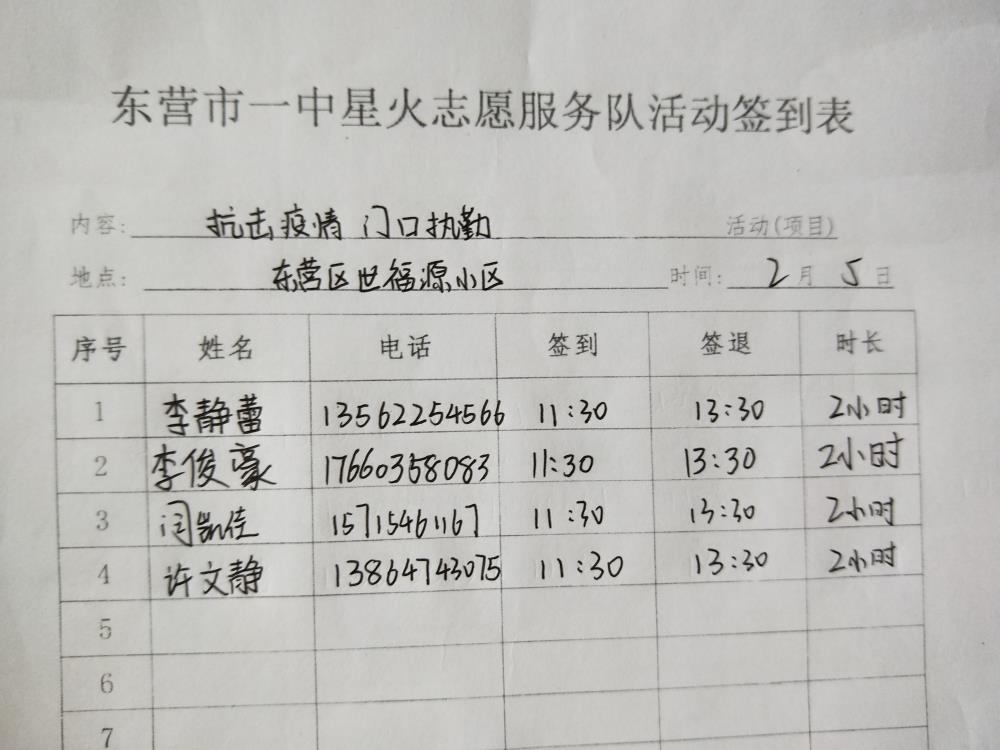 东营市一中星火志愿服务队活动签到表
内容: 抗击疫情 门口执勤 活动(项目)
地点: 东营区世福源小区 时间: 2月5日
序号 姓名 电话 签到 签退 时长
1 李静蕾 13562254566 11:30 13:30 2小时
2 李俊豪 17660358083 11:30 13:30 2小时
3 闫凯佳 15715461167 11:30 13:30 2小时
4 许文静 13864743075 11:30 13:30 2小时
5
6
7